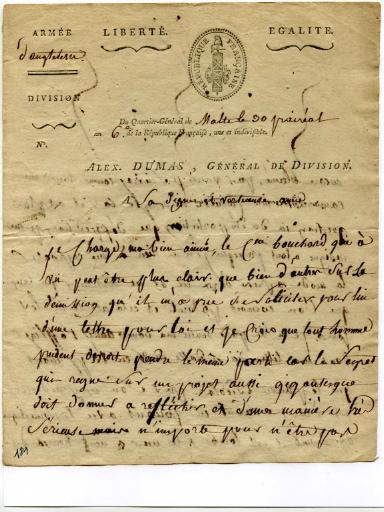 ARMÉE LIBERTÉ. EGALITE.
d'angleterre
RÉPUBLIQUE FRANÇAISE
DIVISION
Du Quartier-Général de Malte le 30 prairéal
an 6e de la République Française, une et indivisible.
N°.
ALEX. DUMAS, GÉNÉRAL DE DIVISION.
A Sa digne et vertueuse amie
Je Charge, ma bien aimée, le Cen bouchard qui a
vu peut être plus clair que bien d'autre Sur la
demission qu'il m'a prié de Solliciter pour lui
d'une lettre pour toi et je Crois que tout homme
prudent devroit prendre le même parti car le Secret
qui regne Sur un projet aussi gigantesque
doit donner a reflechir, et d'une manière très
Serieuse mais n'importe pour n'être pas
181